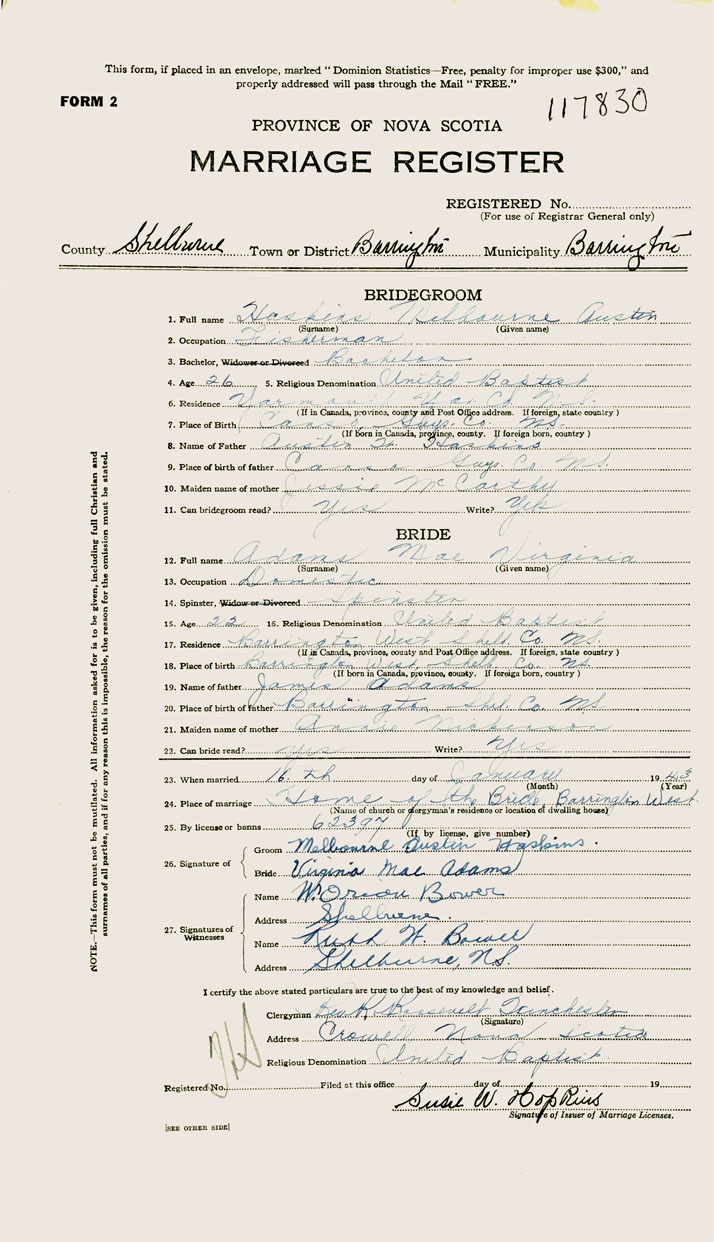 This form, if placed in an envelope, marked "Dominion Statistics—Free, penalty for improper use $300," and
properly addressed will pass through the Mail "FREE."
FORM 2
117830
PROVINCE OF NOVA SCOTIA
MARRIAGE REGISTER
REGISTERED No.
(For use of Registrar General only)
County Shelburne Town or District Barrington Municipality Barrington
BRIDEGROOM
1. Full name Haskins Melbourne Austin
(Surname) (Given name)
2. Occupation Fisherman
3. Bachelor, Widower or Divorced Bachelor
4. Age 26 5. Religious Denomination United Baptist
6. Residence Yarmouth Yar. Co. N.S.
(If in Canada, province, county and Post Office address. If foreign, state country)
7. Place of Birth Canso Guys. Co. N.S.
(If born in Canada, province, county. If foreign born, country)
8. Name of Father Austin H. Haskins
9. Place of birth of father Canso Guys. Co. N.S.
10. Maiden name of mother Jessie McCarthy
11. Can bridegroom read? Yes Write? Yes
BRIDE
12. Full name Adams Mae Virginia
(Surname) (Given name)
13. Occupation Domestic
14. Spinster, Widow or Divorced Spinster
15. Age 22 16. Religious Denomination United Baptist
17. Residence Barrington West Shelb. Co. N.S.
(If in Canada, province, county and Post Office address. If foreign, state country)
18. Place of birth Barrington West, Shelb. Co. N.S.
(If born in Canada, province, county. If foreign born, country)
19. Name of father James Adams
20. Place of birth of father Barrington Shel. Co. N.S.
21. Maiden name of mother Annie Nickerson
22. Can bride read? Yes Write? Yes
23. When married 16th day of January 1943
(Month) (Year)
24. Place of marriage Home of the Bride, Barrington West
(Name of church or clergyman's residence or location of dwelling house)
25. By license or banns 62397
(If by license, give number)
26. Signature of
Groom Melbourne Austin Haskins.
Bride Virginia Mae Adams
27. Signatures of Witnesses
Name W. Orson Bower
Address Shelburne.
Name Ruth W. Bower
Address Shelburne, N.S.
NOTE.—This form must not be mutilated. All information asked for is to be given, including full Christian and
surnames of all parties, and if for any reason this is impossible, the reason for the omission must be stated.
I certify the above stated particulars are true to the best of my knowledge and belief.
Clergyman Rev. R. Roosevelt
(Signature)
Address Crowell Nova Scotia
Religious Denomination United Baptist
Registered No. Filed at this office day of 19
Susie W. Hopkins
Signature of Issuer of Marriage Licenses.
[SEE OTHER SIDE]